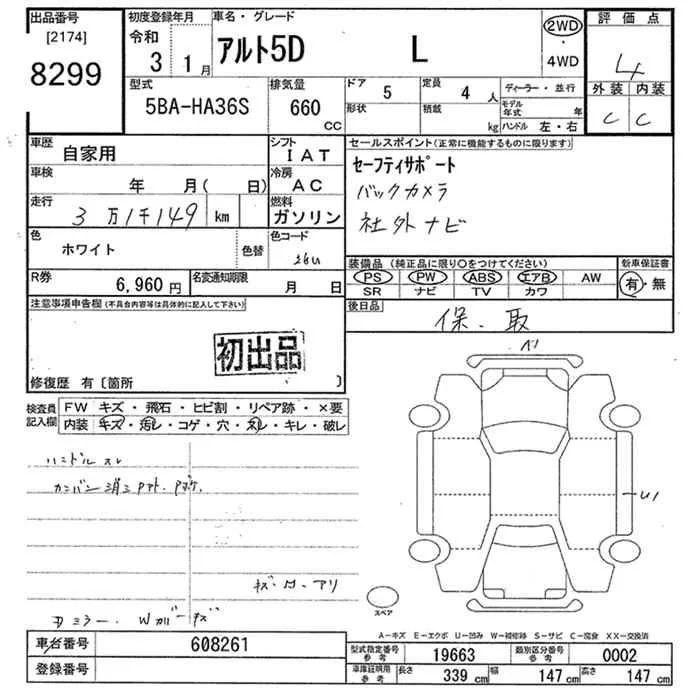 出品番号
[2174]
8299
初度登録年月
令和
3 1月
車名・グレード
アルト5D L
2WD
・
4WD
評価点
4
外装 内装
C C
型式
5BA-HA36S
排気量
660
cc
ドア 5
形状
定員 4 人
積載 kg
ディーラー・並行
モデル年式 年
ハンドル 左・右
車歴
自家用
シフト
IAT
車検
年 月( 日)
冷房
AC
走行
3万1千149 km
燃料
ガソリン
色
ホワイト
色替
色コード
26U
R券
6,960円
名変通知期限
月 日
セールスポイント(正常に機能するものに限ります)
セーフティサポート
バックカメラ
社外ナビ
装備品 (純正品に限り○をつけてください)
PS PW ABS エアB AW
SR ナビ TV カワ
新車保証書
有・無
後日品
保.取
注意事項申告欄(不具合内容等は具体的に記入して下さい)
初出品
修復歴 有〔箇所 〕
検査員
記入欄
FW キズ・飛石・ヒビ割・リペア跡・×要
内装 キズ・汚レ・コゲ・穴・スレ・キレ・破レ
ハンドルスレ
カンバン消ミアト.
キズ・
アリ
ミラー.
キズ
U1
スペア
A−キズ E−エクボ U−凹み W−補修跡 S−サビ C−腐食 XX−交換済
車台番号 608261
登録番号
型式指定番号
参考
19663
類別区分番号
参考
0002
車庫証明用
参考
長さ 339 cm 幅 147 cm 高さ 147 cm